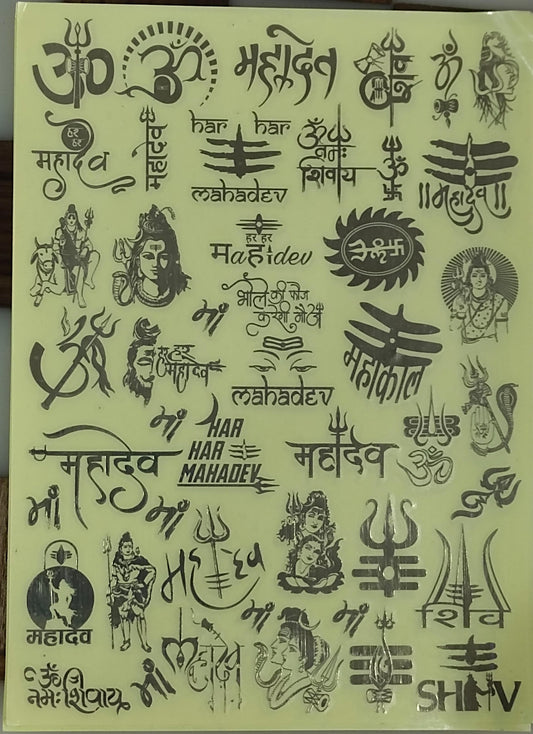 ॐ
ॐ
महादेव
शिव
ॐ
हर
हर
महादेव
महादेव
har har
mahadev
ॐ
नमः
शिवाय
ॐ
॥महादेव॥
हर हर
महाdev
मां
भोले की फौज
करेगी मौज
महाकाल
ॐ
हर हर
महादेव
mahadev
मां
HAR
HAR
MAHADEV
महादेव
महादेव
ॐ
मां
मां
महादेव
महादेव
शिव
मां
मां
महादेव
ॐ
नमः शिवाय
मां
SHIV